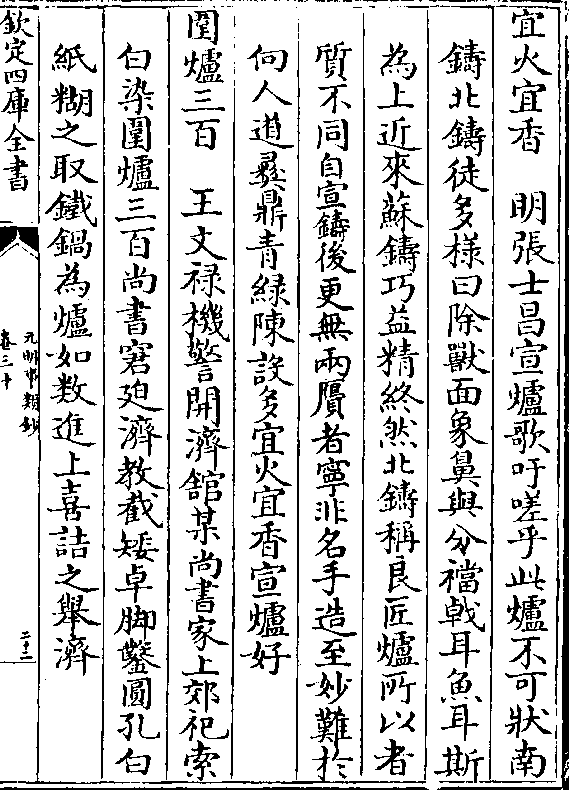 宜火宜香　明張士昌宣爐歌吁嗟乎此爐不可狀南
鑄北鑄徒多樣曰除獸面象鼻與分襠戟耳魚耳斯
為上近來蘇鑄巧益精終然北鑄稱良匠爐所以者
質不同自宣鑄後更無兩贋者寧非名手造至妙難於
向人道彞鼎青緑陳設多宜火宜香宣爐好
圍爐三百　王文禄機警開濟館某尚書家上郊祀索
白染圍爐三百尚書窘廹濟教截矮卓脚鑿圓孔白
紙糊之取鐵鍋為爐如数進上喜詰之舉濟
欽定四庫全書
元明事類鈔
卷三十
二十二